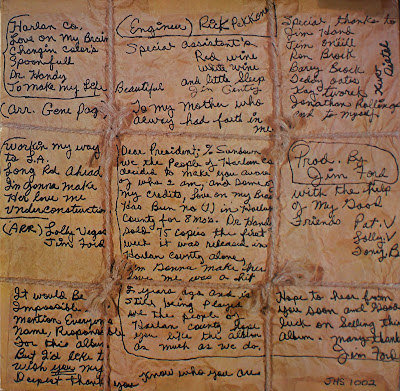 Harlan Co.
Love on My Brain
Changin Colors
Spoonfull
Dr. Handy
To make my Life Beautiful
(Arr. Gene Pag
Workin my way
to L.A.
Long Rd Ahead
Im Gonna Make
Her love me
Under Construction
(ARR) Lolly Vegas
Jim Ford
It would Be
Impossible
Mention Everyone
Name, Responsible
For this album
But I'd like t
Wish you my
Deepest Thank you
(Engineer) Rick Pekkone
Special assistant's
Red wine
White wine
and little sleep
Jim Gentry
To my Mother who
always had faith in
me
Dear President, % Sundown
We the People of Harlan Co
decided to make you aware
of who I am, and some of
my credits,
County for 8 mos. Dr. Handy
sold 75 copies the first
week it was released in
Harlan County alone,
Im Gonna Make Her
love me was a hit
2 years ago and is
still being played
we the people of
Harlan County hope
you like the album
as much as we do.
Know who you are
Special thanks to
Jim Hand
Jim Oneill
Ron Brock
Barry Brock
Jonathan Rollings
and to myself
Prod. By
Jim Ford
with the help
of My Good
Friends Pat. V
Lolly. V
Hope to hear from
you soon and Good
Luck on selling the
Album. Many thanks
Jim Ford
SHS 1002